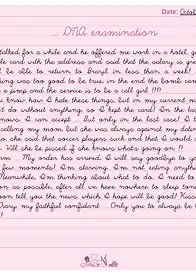 Date: Octob
... DNA examination
talked for a while and he offered me work in a hotel, g
de card with the address and said that the salary is grea
I be able to return to Brazil in less than a week!
thing was too good to be true, in the end the bomb cam
a pimp and the service is to be a call girl !!!?
u know how I hate these things, but in my current m
t do without anything, so I kept the card (in the last
nows, I can accept ... But only in the last case! I t
calling my mom, but she was always against my datin
o, she said that soccer players suck and that I would
. Will she be pissed if she knows what's going on ?
m ... My order has arrived, I will say goodbye to yo
few moments! I'm starving, I'm not eating anythi
Meanwhile, I'm thinking about what to do, I need to
on as possible, after all we have nowhere to sleep ton
oon tell you the news, which I hope will be good! Kiss
Diary, my faithful confidant ... Only you to always be t
!